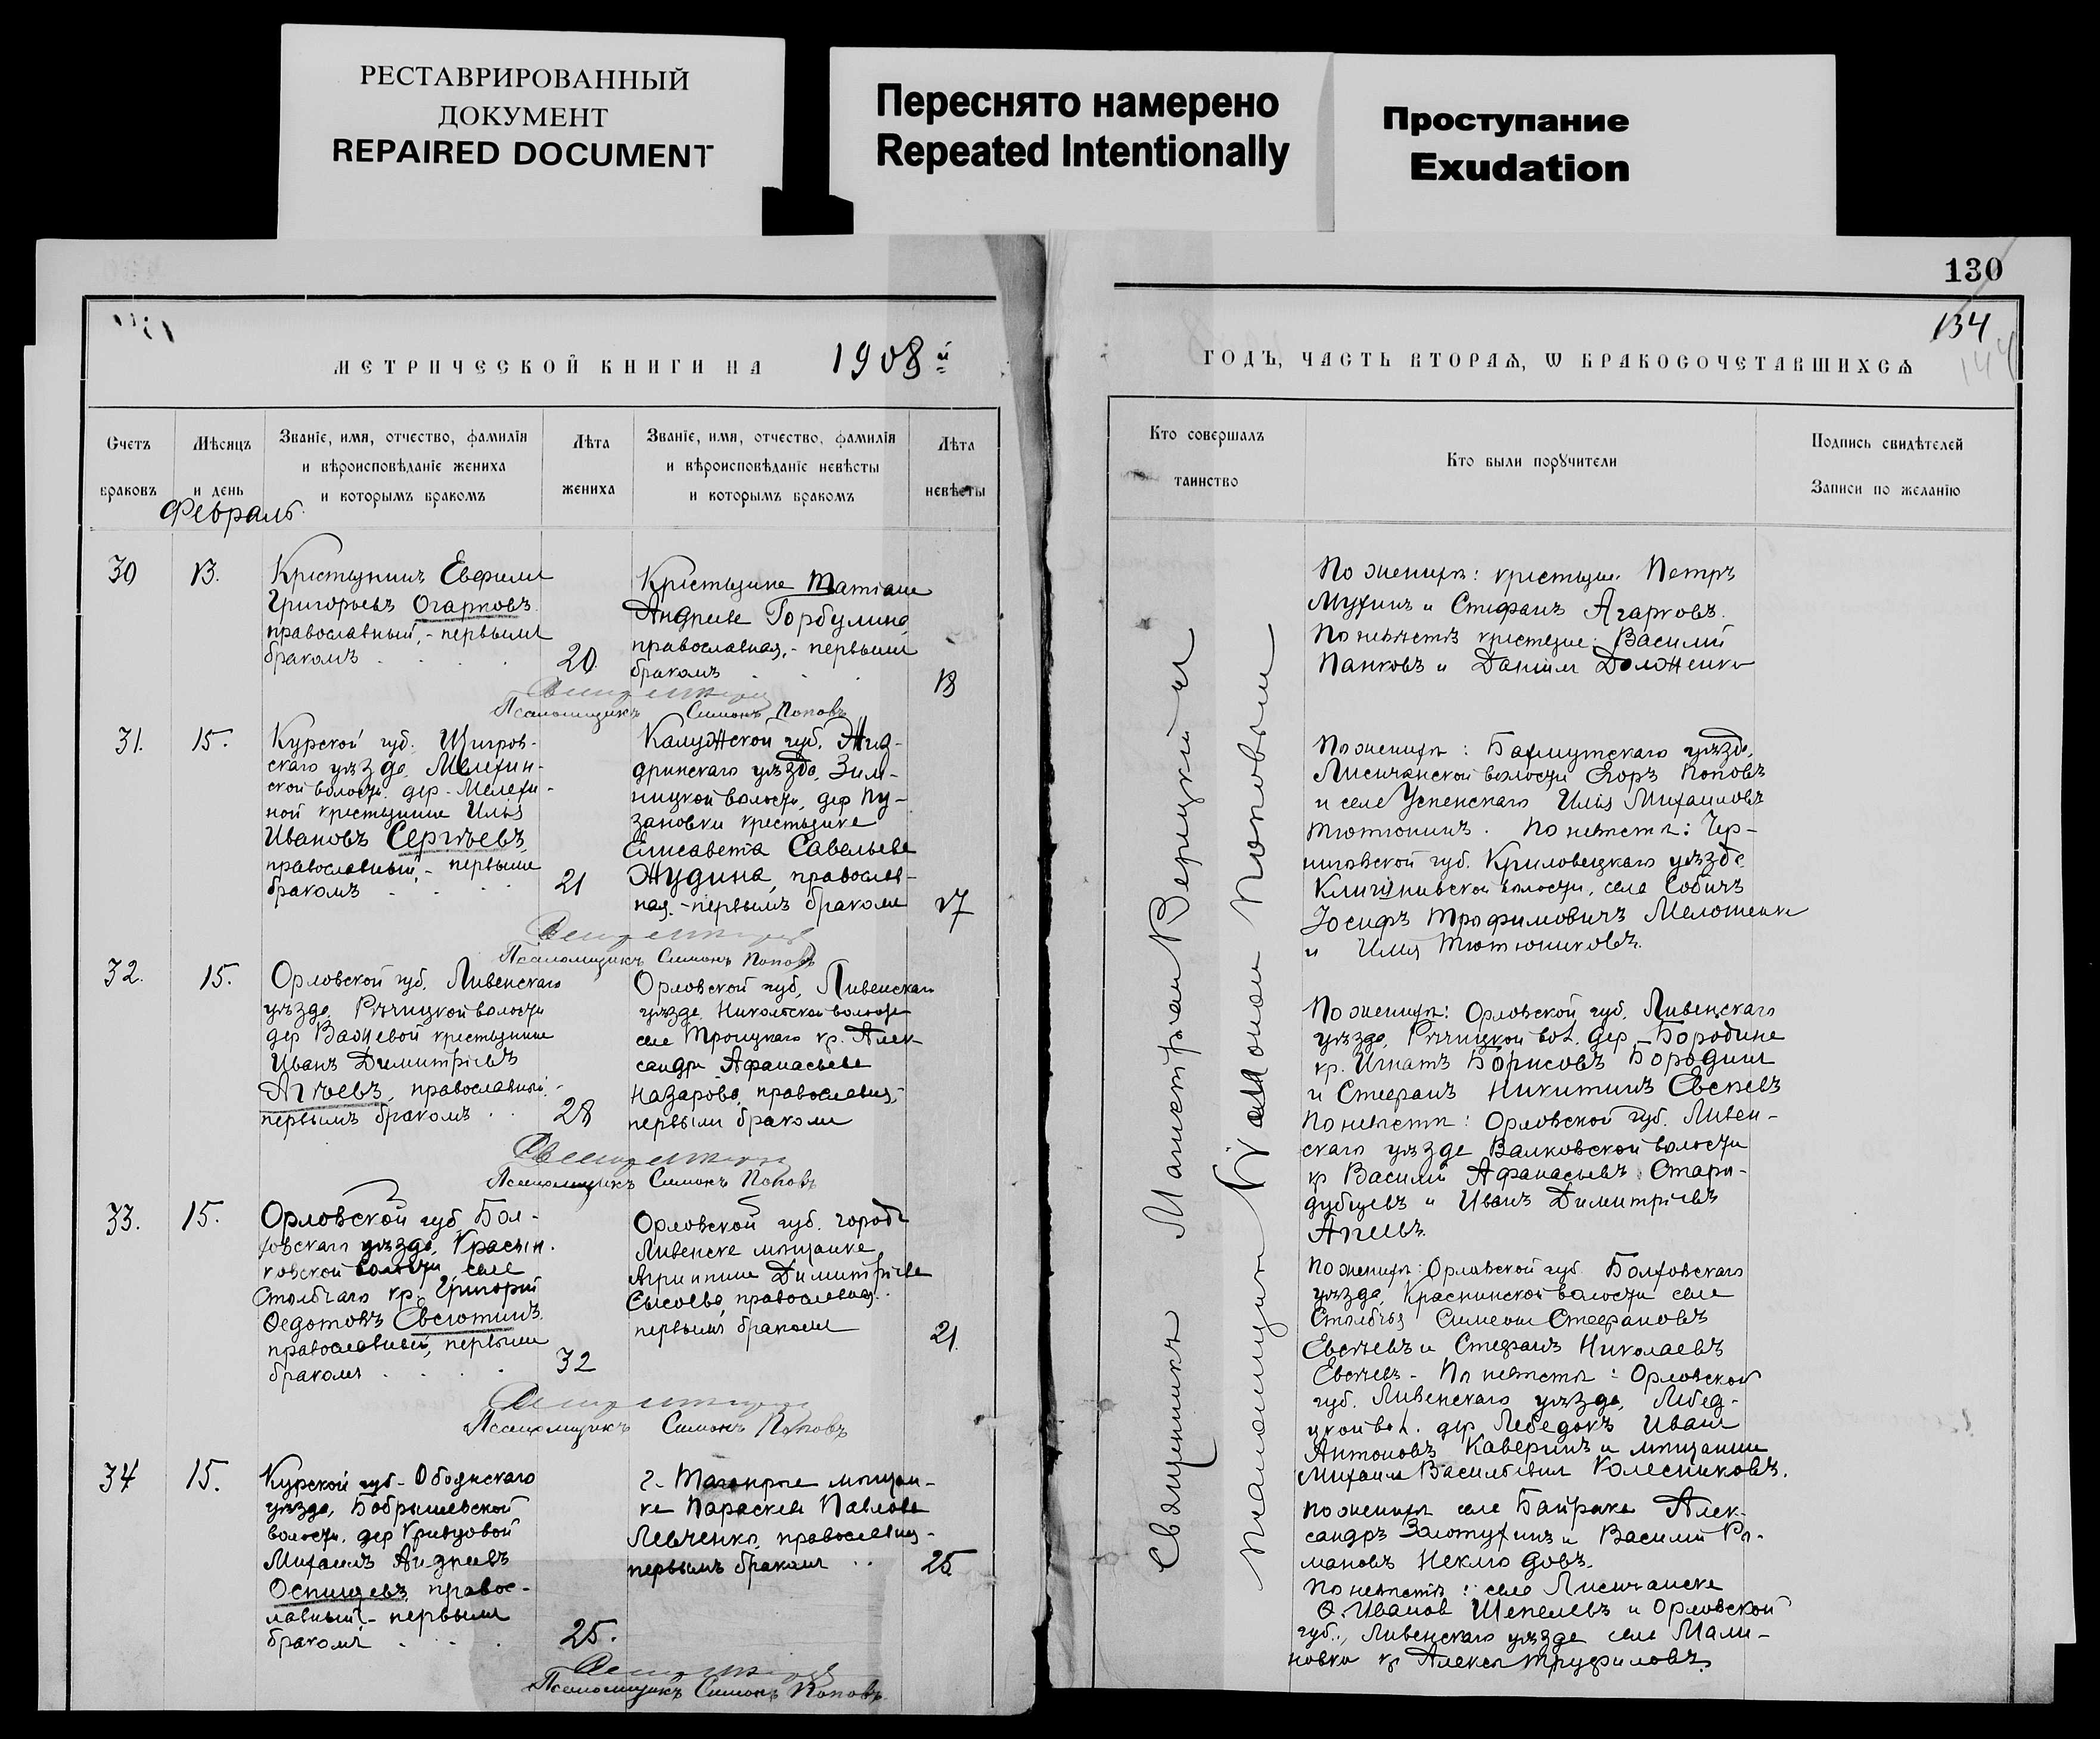 РЕСТАВРИРОВАННЫЙ
ДОКУМЕНТ
REPAIRED DOCUMENT
Переснято намерено
Repeated Intentionally
Проступание
Exudation
МЕТРИЧЕСКОЙ КНИГИ НА 1908 й
Счетъ браковъ
Мѣсяцъ и день
Званіе, имя, отчество, фамилія
и вѣроисповѣданіе жениха
и которымъ бракомъ
Лѣта
жениха
Званіе, имя, отчество, фамилія
и вѣроисповѣданіе невѣсты
и которымъ бракомъ
Лѣта
невѣсты
Февраль
30
13.
Крестьянинъ Евфимій
Григорьевъ Огарковъ
православный, - первымъ
бракомъ
20.
Крестьянка Татіана
Андреева Горбулина
православная, - первымъ
бракомъ
18
Псаломщикъ Симонъ Поповъ
31.
15.
Курской губ. Щигров-
скаго уѣзда, Мелехин-
ской волости дер. Мелехи-
ной крестьянинъ Илья
Ивановъ Сергѣевъ
православный, - первымъ
бракомъ
21
Калужской губ. Жиз-
дринскаго уѣзда, Зик-
ницкой волости, дер Пу-
зановки крестьянка
Елисавета Савельева
Жудина, православ-
ная, - первымъ бракомъ
17
Псаломщикъ Симонъ Поповъ
32.
15.
Орловской губ. Ливенскаго
уѣзда, Рѣчицкой волости
дер крестьянинъ
Иванъ Димитріевъ
Агѣевъ, православный -
первымъ бракомъ
28
Орловской губ, Ливенскаго
уѣзда, Никольской волости
села Троицкаго кр. Алек-
сандра Афанасьева
Назарова, православная,
первымъ бракомъ
Псаломщикъ Симонъ Поповъ
33.
15.
Орловской губ Бол-
ховскаго уѣзда,
волости села
Столбчаго кр. Григорій
Ѳедотовъ Евсютинъ
православный, первымъ
бракомъ
32
Орловской губ. города
Ливенска мѣщанка
Агриппина Димитріева
Сысоева, православная.
первымъ бракомъ
21.
Псаломщикъ Симонъ Поповъ
34
15.
Курской губ - Обоянскаго
уѣзда, Бобрышевской
волости, дер Кривцовой
Михаилъ Андреевъ
Оспищевъ, правос-
лавный - первымъ
бракомъ
25.
г. Таганрога мѣщан-
ка Параскева Павлова
Левченко, православная -
первымъ бракомъ
25
Псаломщикъ Симонъ Поповъ
130
134
144
ГОДЪ, ЧАСТЬ ВТОРАЯ, Ѡ БРАКОСОЧЕТАВШИХСѦ
Кто совершалъ
таинство
Кто были порꙋчители
Подпись свидѣтелей
Записи по желанію
Священникъ Верицкій и
псаломщикъ Симонъ Поповъ
По женихѣ: крестьяне Петръ
Мухинъ и Стефанъ Агарковъ.
По невѣстѣ крестьяне: Василій
Панковъ и Даніилъ Долженко
По женихѣ: Бахмутскаго уѣзда,
Лисичанской волости Егоръ Поповъ
и села Успенскаго Илья Михаиловъ
Тютюнинъ. По невѣстѣ: Чер-
ниговской губ. уѣзда
волости, села Собичъ
Іосифъ Трофимовичъ
и Илія Тютюниковъ.
По женихѣ: Орловской губ. Ливенскаго
уѣзда, Рѣчицкой вол. дер - Бородина
кр. Игнатъ Борисовъ Бородинъ
и Стефанъ Никитинъ
По невѣстѣ: Орловской губ. Ливен-
скаго уѣзда Валковской волости
кр Василій Афанасьевъ Старо-
дубцевъ и Иванъ Димитріевъ
Агѣевъ.
По женихѣ: Орловской губ. Болховскаго
уѣзда, волости села
Столбчья Симеонъ Стефановъ
Евсѣевъ и Стефанъ Николаевъ
Евсѣевъ - По невѣстѣ: Орловской
губ. Ливенскаго уѣзда, Лебед-
ской вол. дер Лебедокъ Иванъ
Антоновъ Каверинъ и мѣщанинъ
Михаилъ Васильевичъ Колесниковъ.
По женихѣ села Байрака Алек-
сандръ Золотухинъ и Василій Ро-
мановъ Неклюдовъ.
По невѣстѣ: села Лисичанска
Ѳ. Иванов Шепелевъ и Орловской
губ., Ливенскаго уѣзда села Мали-
новка кр Алексѣй Труфиловъ.